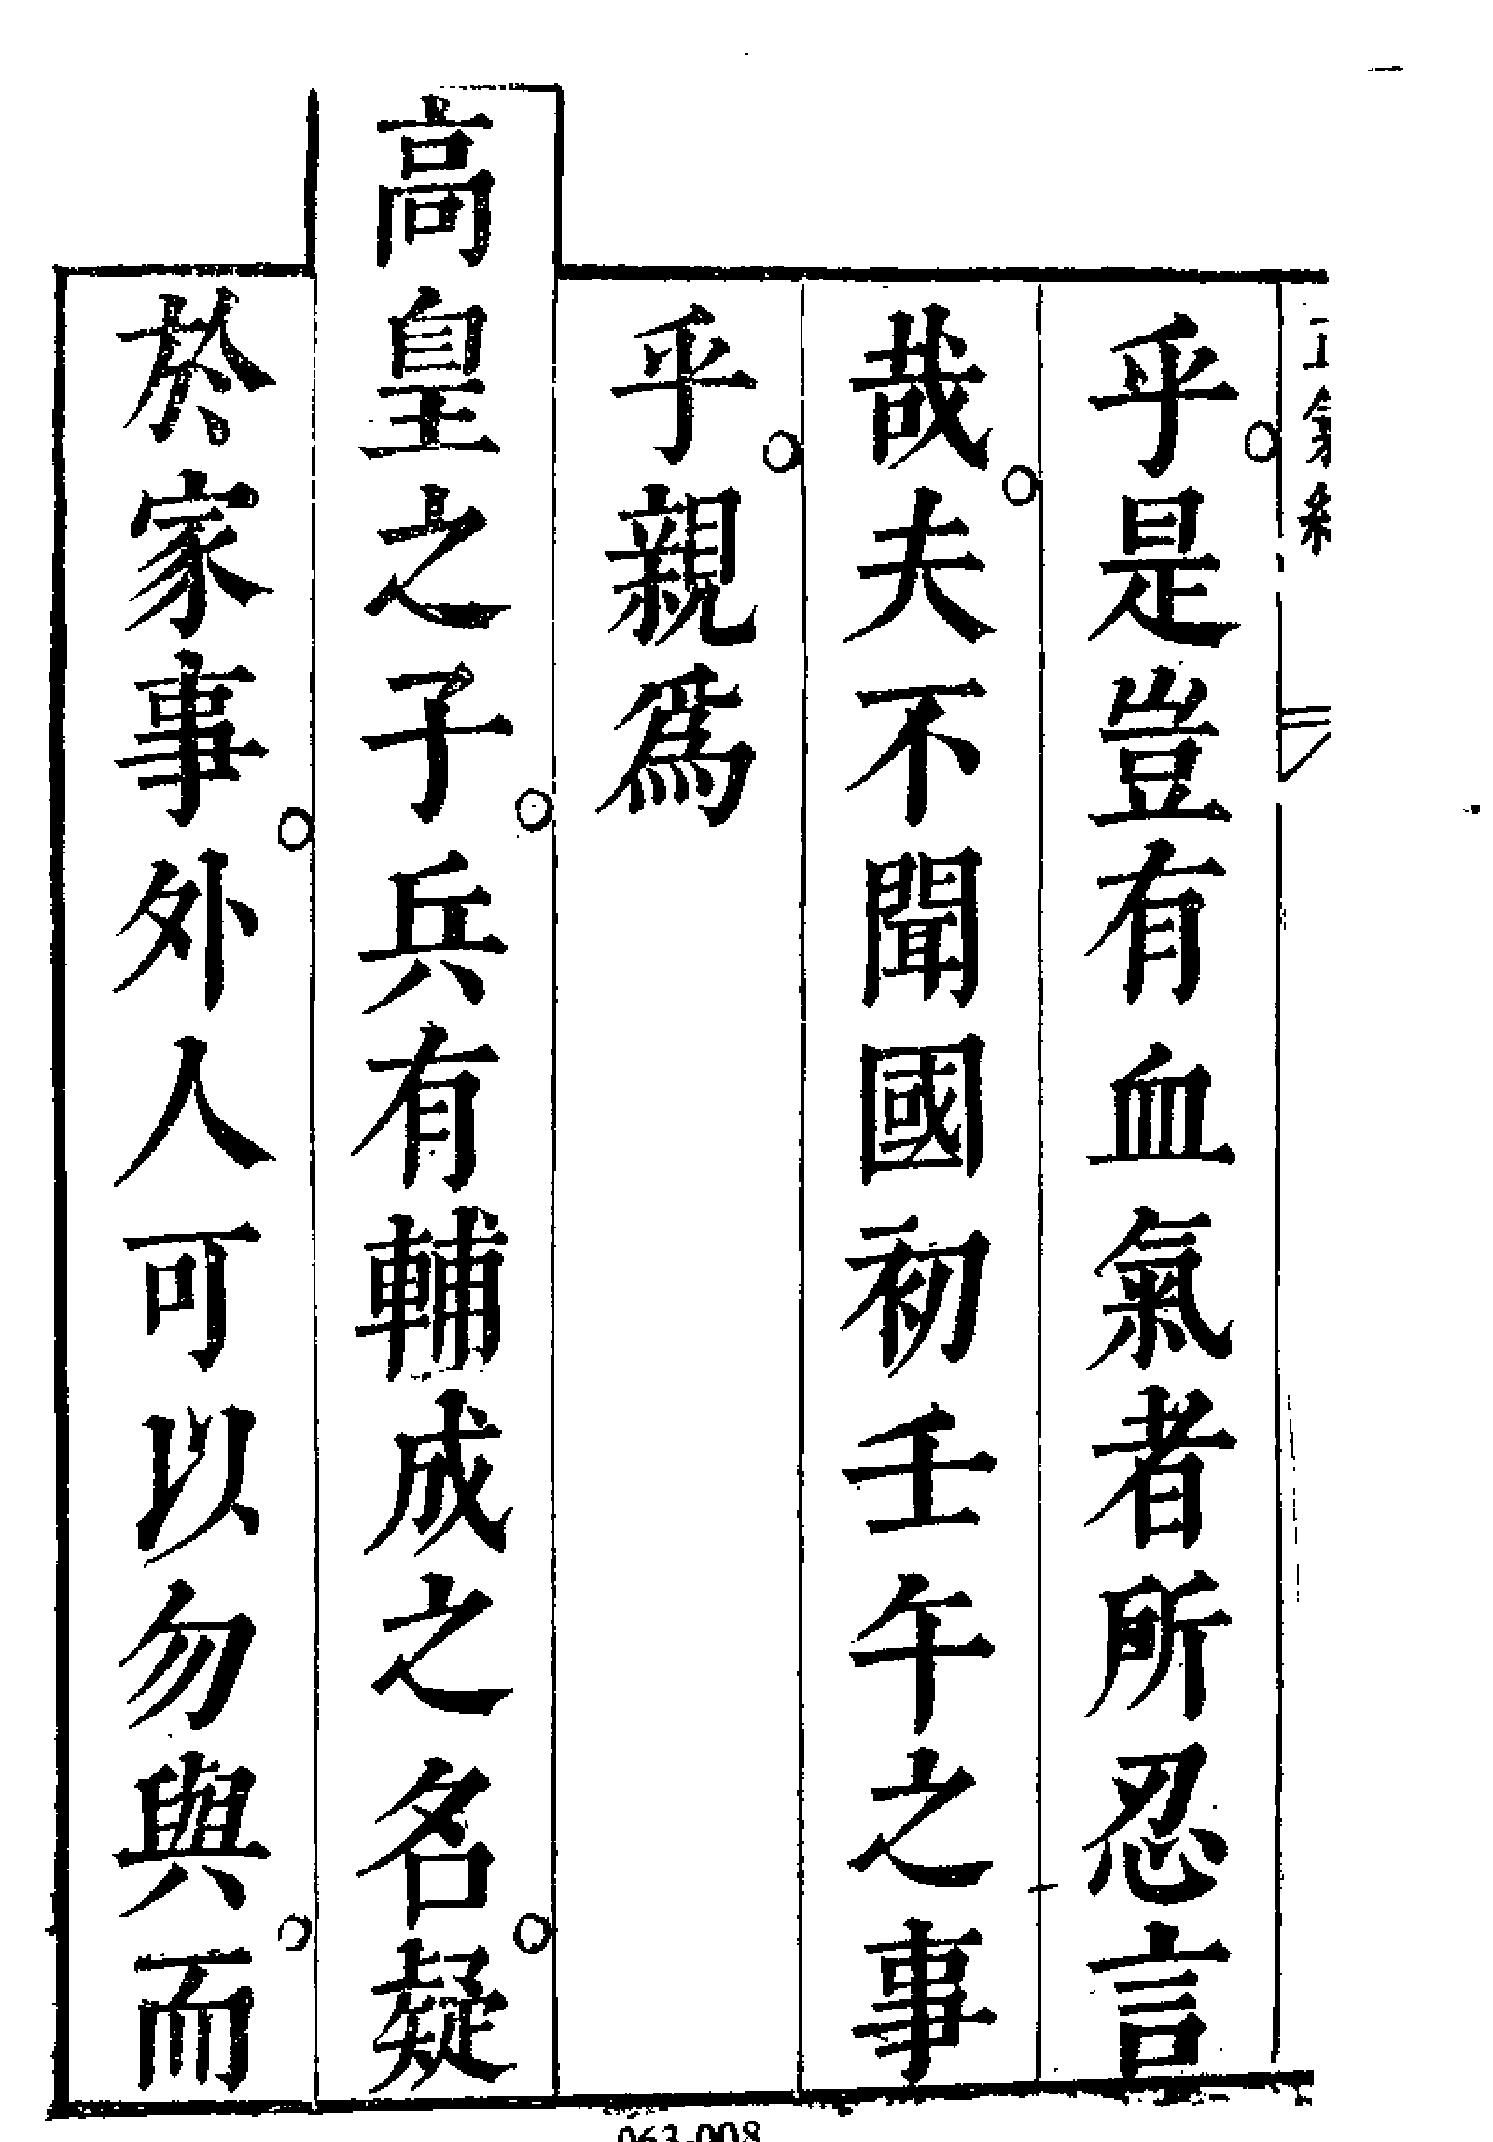 乎是豈有血氣者所忍言
哉夫不聞國初壬午之事
乎親爲
高皇之子兵有輔成之名疑
於家事外人可以勿與而
063-008